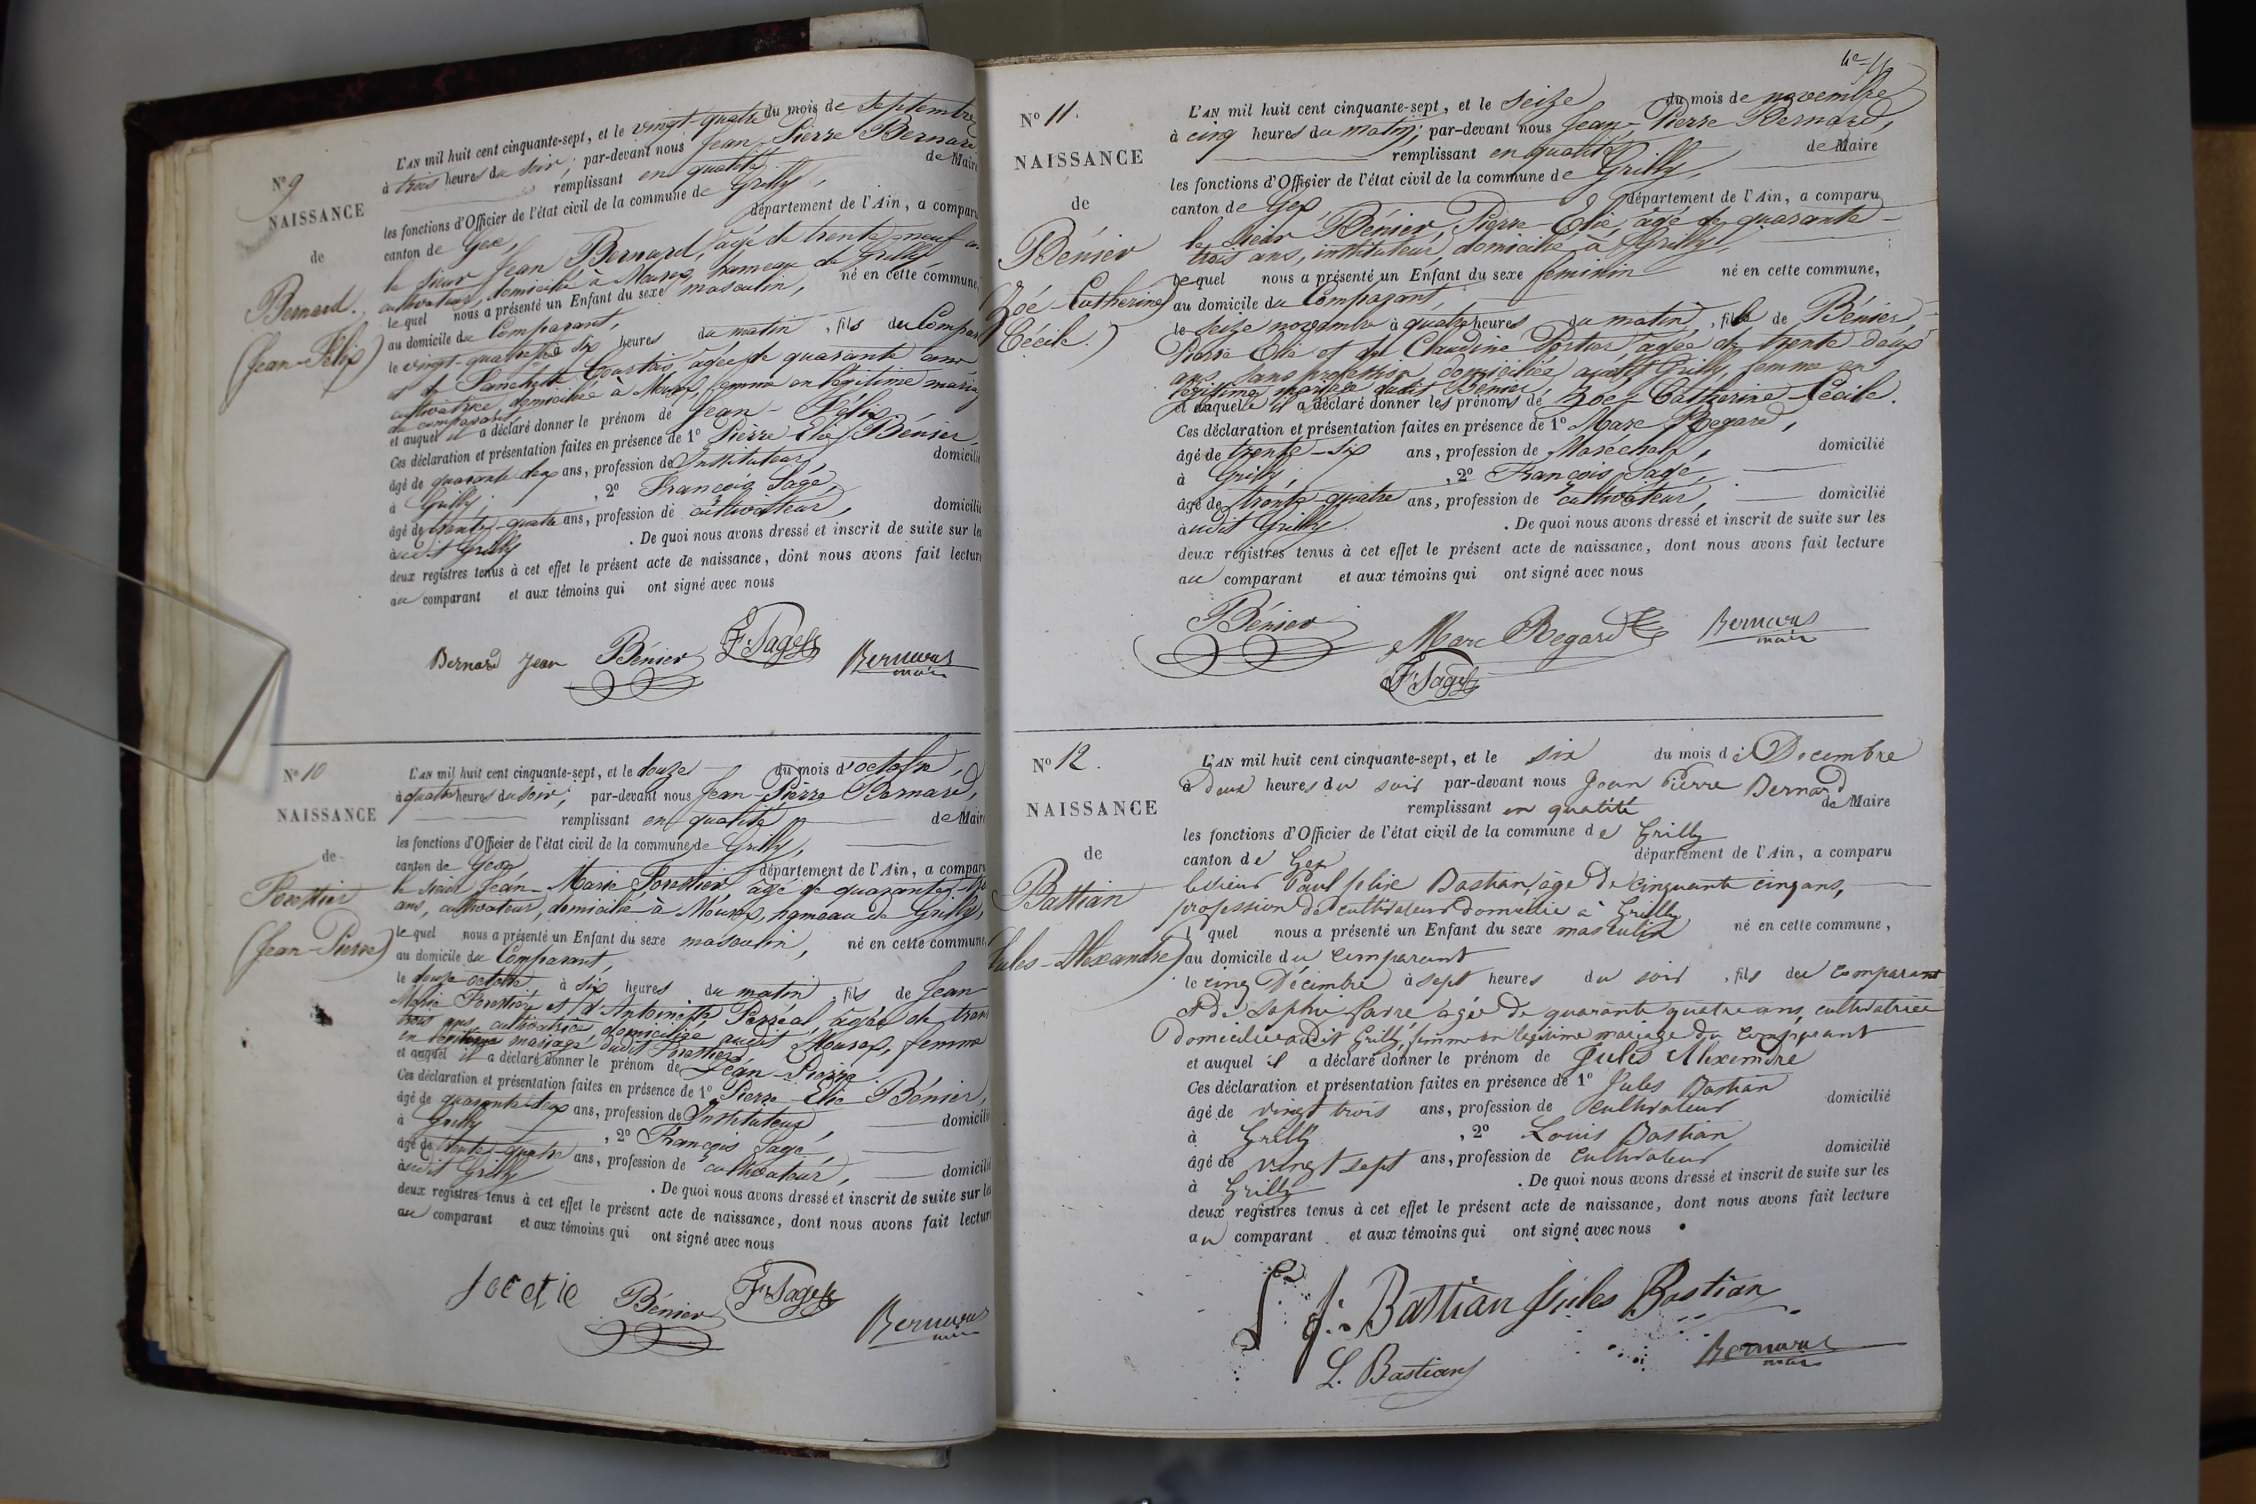 N° 9
NAISSANCE
de
Bernard.
(Jean-Félix)
L'AN mil huit cent cinquante-sept, et le vingt-quatre du mois de septembre
à trois heures du soir, par-devant nous Jean-Pierre Bernard
remplissant en qualité de Maire
les fonctions d'Officier de l'état civil de la commune de Grilly,
canton de Gex, département de l'Ain, a comparu
le sieur Jean Bernard, âgé de trente-neuf ans
cultivateur, domicilié à Mourex, hameau de Grilly
lequel nous a présenté un Enfant du sexe masculin, né en cette commune,
au domicile du Comparant,
le vingt-quatre à six heures du matin, fils du Comparant
et de âgée de quarante ans
cultivatrice, domiciliée à Mourex, femme en légitime mariage
du comparant
et auquel il a déclaré donner le prénom de Jean-Félix.
Ces déclaration et présentation faites en présence de 1° Pierre Elie Bénier,
âgé de quarante deux ans, profession de Instituteur, domicilié
à Grilly, 2° François Sage,
âgé de trente-quatre ans, profession de cultivateur, domicilié
audit Grilly. De quoi nous avons dressé et inscrit de suite sur les
deux registres tenus à cet effet le présent acte de naissance, dont nous avons fait lecture
au comparant et aux témoins qui ont signé avec nous
Bernard Jean Bénier F. Sage Bernard
maire
N° 10
NAISSANCE
de
Forestier
(Jean-Pierre)
L'AN mil huit cent cinquante-sept, et le douze du mois d'octobre,
à quatre heures du soir, par-devant nous Jean-Pierre Bernard,
remplissant en qualité de Maire
les fonctions d'Officier de l'état civil de la commune de Grilly,
canton de Gex, département de l'Ain, a comparu
le sieur Jean-Marie Forestier, âgé de quarante
ans, cultivateur, domicilié à Mourex, hameau de Grilly,
lequel nous a présenté un Enfant du sexe masculin, né en cette commune,
au domicile du Comparant,
le douze octobre, à six heures du matin, fils de Jean
Marie Forestier, et d'Antoinette Perréal âgée de trente
trois ans, cultivatrice, domiciliée audit Mourex, femme
en légitime mariage dudit Forestier,
et auquel il a déclaré donner le prénom de Jean-Pierre.
Ces déclaration et présentation faites en présence de 1° Pierre-Elie Bénier,
âgé de quarante deux ans, profession de Instituteur, domicilié
à Grilly, 2° François Sage,
âgé de trente-quatre ans, profession de cultivateur, domicilié
audit Grilly. De quoi nous avons dressé et inscrit de suite sur les
deux registres tenus à cet effet le présent acte de naissance, dont nous avons fait lecture
au comparant et aux témoins qui ont signé avec nous
Bénier F. Sage Bernard
maire
N° 11.
NAISSANCE
de
Bénier
Zoé-Catherine
Cécile.)
L'AN mil huit cent cinquante-sept, et le seize du mois de novembre
à cinq heures du matin; par-devant nous Jean-Pierre Bernard,
remplissant en qualité de Maire
les fonctions d'Officier de l'état civil de la commune de Grilly,
canton de Gex, département de l'Ain, a comparu
le sieur Bénier, Pierre-Elie, âgé de quarante-
trois ans, instituteur, domicilié à Grilly,
lequel nous a présenté un Enfant du sexe féminin né en cette commune,
au domicile du Comparant,
le seize novembre à quatre heures du matin, fille de Bénier
Pierre Elie et de Claudine Portier âgée de trente deux
ans, sans profession, domiciliée audit Grilly, femme en
légitime mariage dudit Bénier,
et laquelle il a déclaré donner les prénoms de Zoé-Catherine-Cécile.
Ces déclaration et présentation faites en présence de 1° Marc Regard,
âgé de trente-six ans, profession de Maréchal, domicilié
à Grilly, 2° François Sage,
âgé de trente-quatre ans, profession de cultivateur, domicilié
audit Grilly. De quoi nous avons dressé et inscrit de suite sur les
deux registres tenus à cet effet le présent acte de naissance, dont nous avons fait lecture
au comparant et aux témoins qui ont signé avec nous
Bénier Marc Regard Bernard
maire
F. Sage
N° 12.
NAISSANCE
de
Bastian
Jules-Alexandre)
L'AN mil huit cent cinquante-sept, et le six du mois de Décembre
à deux heures du soir par-devant nous Jean Pierre Bernard
remplissant en qualité de Maire
les fonctions d'Officier de l'état civil de la commune de Grilly
canton de Gex département de l'Ain, a comparu
le sieur Paul Bastian, âgé de cinquante cinq ans,
profession de cultivateur domicilié à Grilly
lequel nous a présenté un Enfant du sexe masculin né en cette commune,
au domicile du comparant
le cinq Décembre à sept heures du soir, fils du comparant
et de Sophie favre âgée de quarante quatre ans, cultivatrice
domiciliée audit Grilly, femme en légitime mariage du comparant
et auquel il a déclaré donner le prénom de Jules Alexendre
Ces déclaration et présentation faites en présence de 1° Jules Bastian
âgé de vingt trois ans, profession de cultivateur domicilié
à Grilly, 2° Louis Bastian
âgé de vingt sept ans, profession de cultivateur domicilié
à Grilly. De quoi nous avons dressé et inscrit de suite sur les
deux registres tenus à cet effet le présent acte de naissance, dont nous avons fait lecture
au comparant et aux témoins qui ont signé avec nous
Bastian Jules Bastian
L. Bastian Bernard
maire